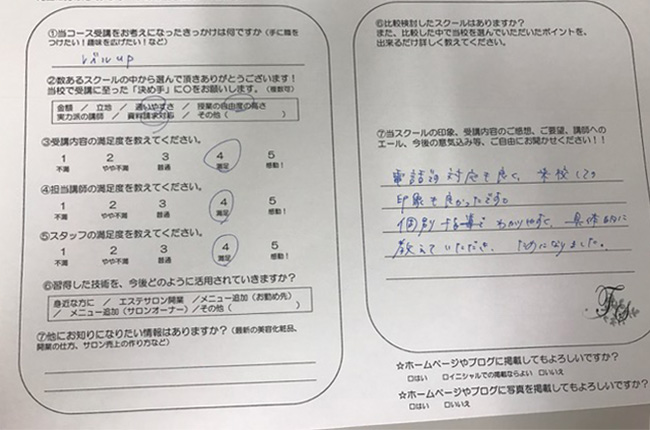 ①当コース受講をお考えになったきっかけは何ですか（手に職を
つけたい！趣味を広げたい！など）
②数あるスクールの中から選んで頂きありがとうございます！
当校で受講に至った「決め手」に○をお願いします。（複数可）
金額 ／ 立地 ／ 通いやすさ ／ 授業の自由度の高さ
実力派の講師 ／ 資料請求対応 ／ その他（ ）
③受講内容の満足度を教えてください。
1 2 3 4 5
不満 やや不満 普通 満足 感動！
④担当講師の満足度を教えてください。
1 2 3 4 5
不満 やや不満 普通 満足 感動！
⑤スタッフの満足度を教えてください。
1 2 3 4 5
不満 やや不満 普通 満足 感動！
⑥習得した技術を、今後どのように活用されていきますか？
身近な方に ／ エステサロン開業 ／メニュー追加（お勤め先）
／ メニュー追加（サロンオーナー）／その他（ ）
⑦他にお知りになりたい情報はありますか？（最新の美容化粧品、
開業の仕方、サロン売上の作り方など）
⑥比較検討したスクールはありますか？
また、比較した中で当校を選んでいただいたポイントを、
出来るだけ詳しく教えてください。
⑦当スクールの印象、受講内容のご感想、ご要望、講師への
エール、今後の意気込み等、ご自由にお聞かせください！！
電話の対応も良く、来校しての
印象も良かったです。
個別指導でわかりやすく、具体的に
教えていただき、ためになりました。
☆ホームページやブログに掲載してもよろしいですか？
□はい □イニシャルでの掲載ならよい □いいえ
☆ホームページやブログに写真を掲載してもよろしいですか？
□はい □いいえ